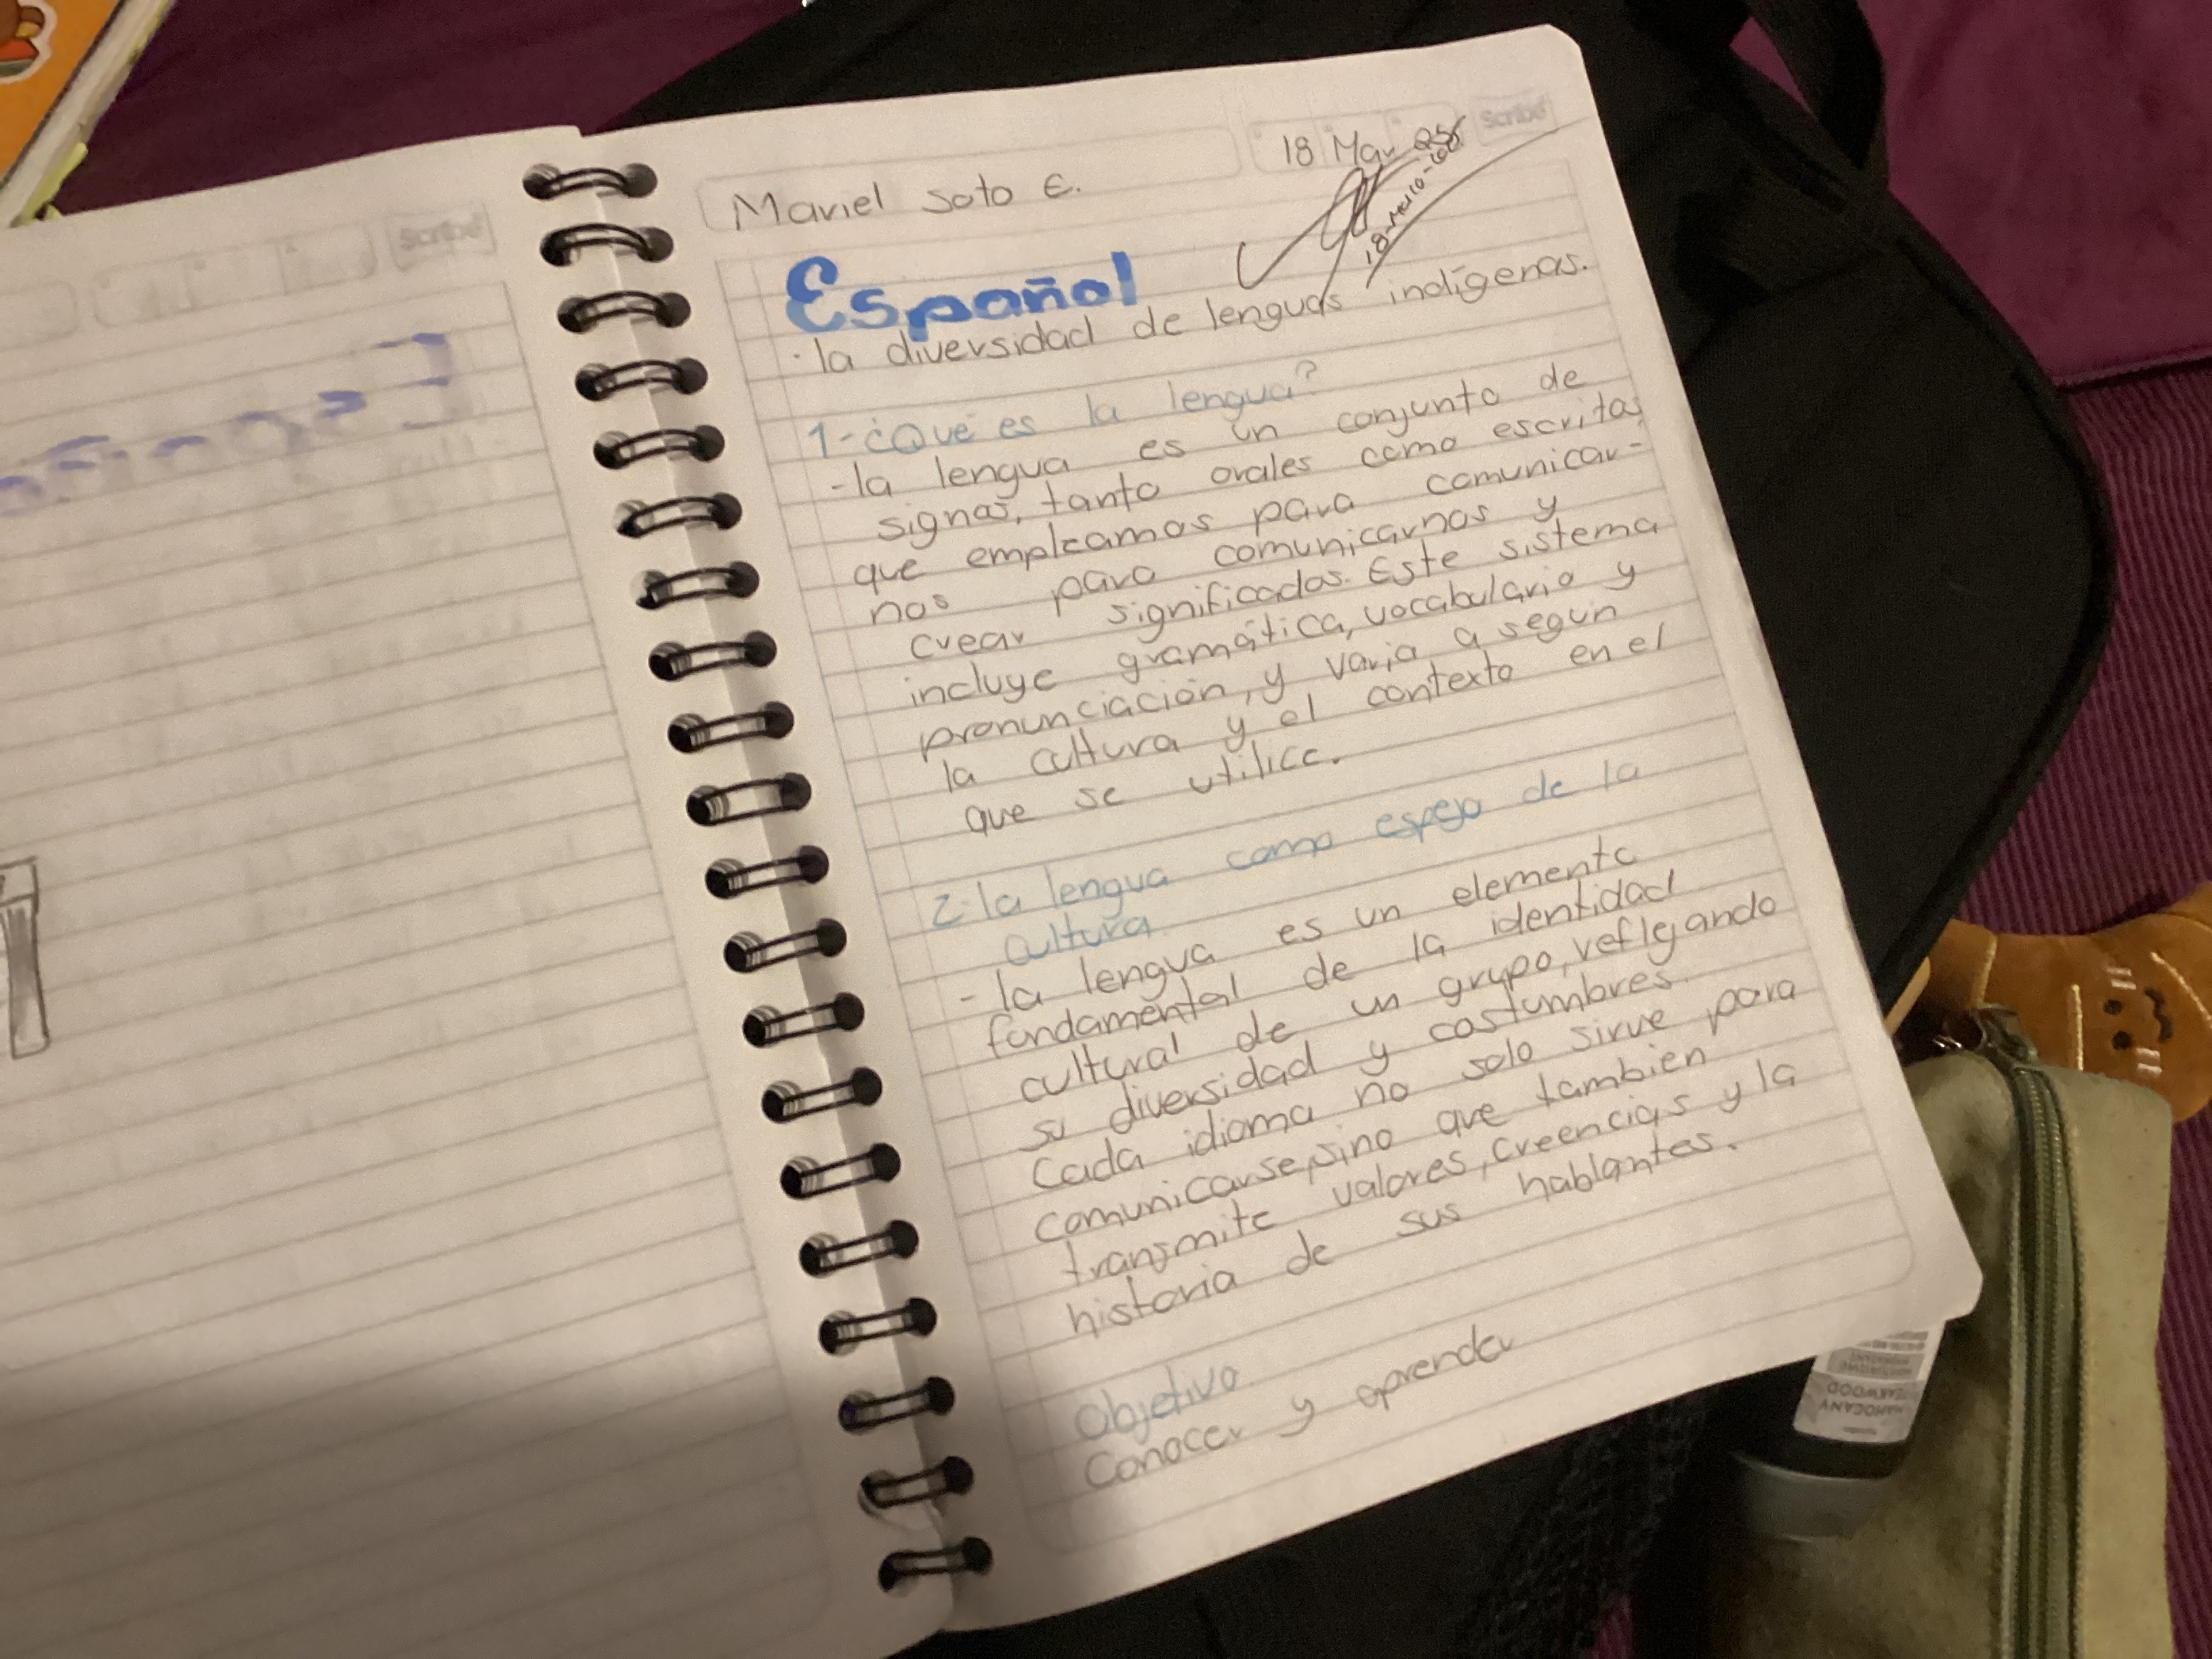 Scribe
Mariel Soto E.
18 Mar 25
Scribe
Español
· la diversidad de lenguas indígenas.
1-¿Qué es la lengua?
- la lengua es un conjunto de
signos, tanto orales como escritos,
que empleamos para comunicar-
nos para comunicarnos y
crear significados. Este sistema
incluye gramática, vocabulario y
pronunciación, y varia a segun
la cultura y el contexto en el
que se utilice.
2-la lengua como espejo de la
cultura.
- la lengua es un elemento
fundamental de la identidad
cultural de un grupo, reflejando
su diversidad y costumbres.
Cada idioma no solo sirve para
comunicarse, sino que tambien
transmite valores, creencias y la
historia de sus hablantes.
Objetivo.
Conocer y aprender
MAHOGANY